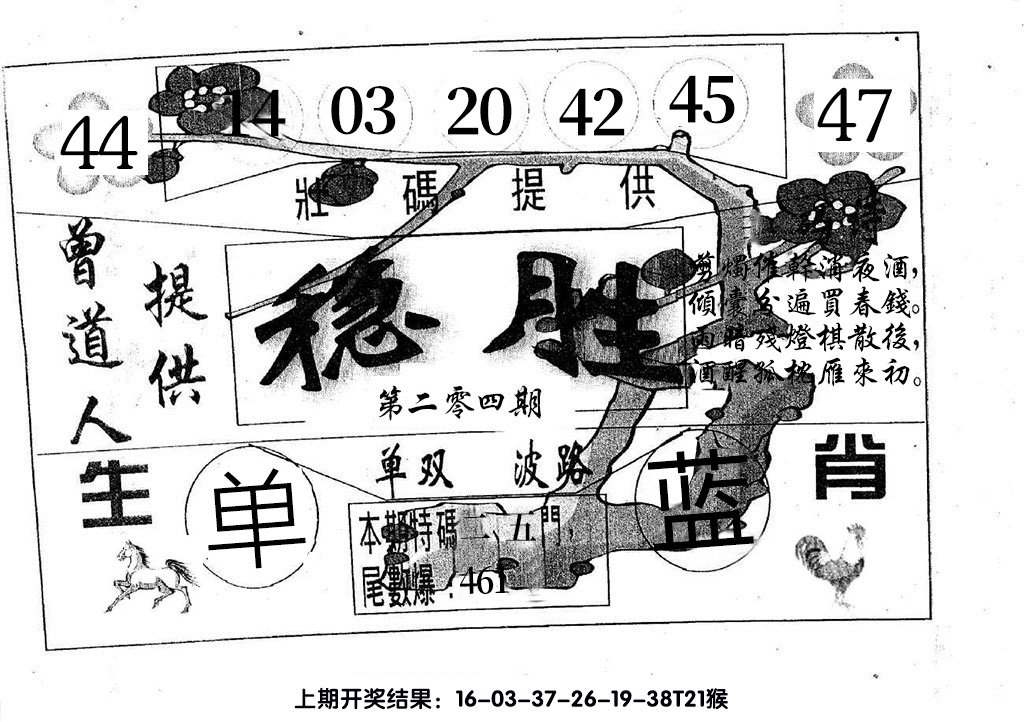 44 14 03 20 42 45 47
壯碼提供
曾道人
提供
稳胜
第二零四期
剪燭催幹消夜酒，
傾囊分遍買春錢。
雨暗殘燈棋散後，
酒醒孤枕雁來初。
单双 波路
生肖
单
蓝
本期特碼二、五門，
尾數爆：461
上期开奖结果：16-03-37-26-19-38T21猴